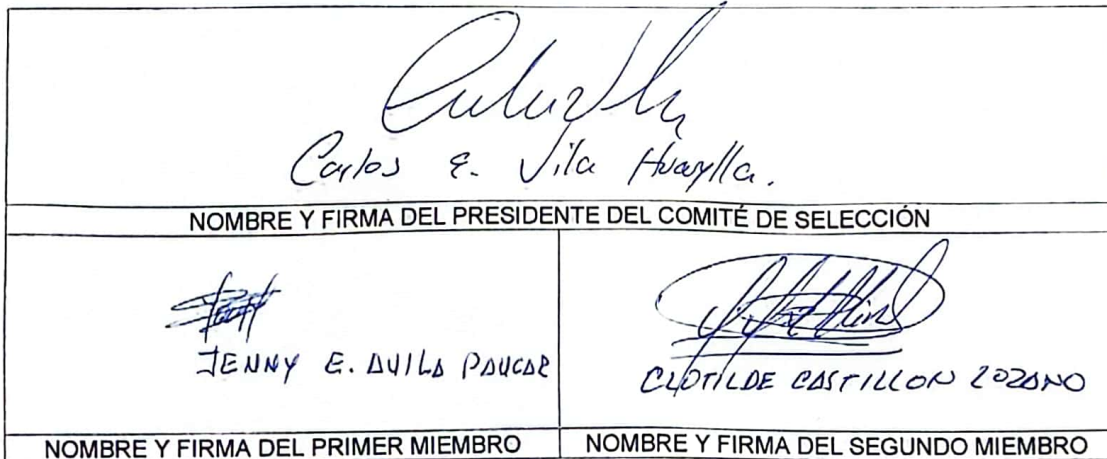 Carlos E. Vila Huaylla.
NOMBRE Y FIRMA DEL PRESIDENTE DEL COMITÉ DE SELECCIÓN
JENNY E. AVILA PAUCAR
CLOTILDE CASTILLON LOZANO
NOMBRE Y FIRMA DEL PRIMER MIEMBRO
NOMBRE Y FIRMA DEL SEGUNDO MIEMBRO